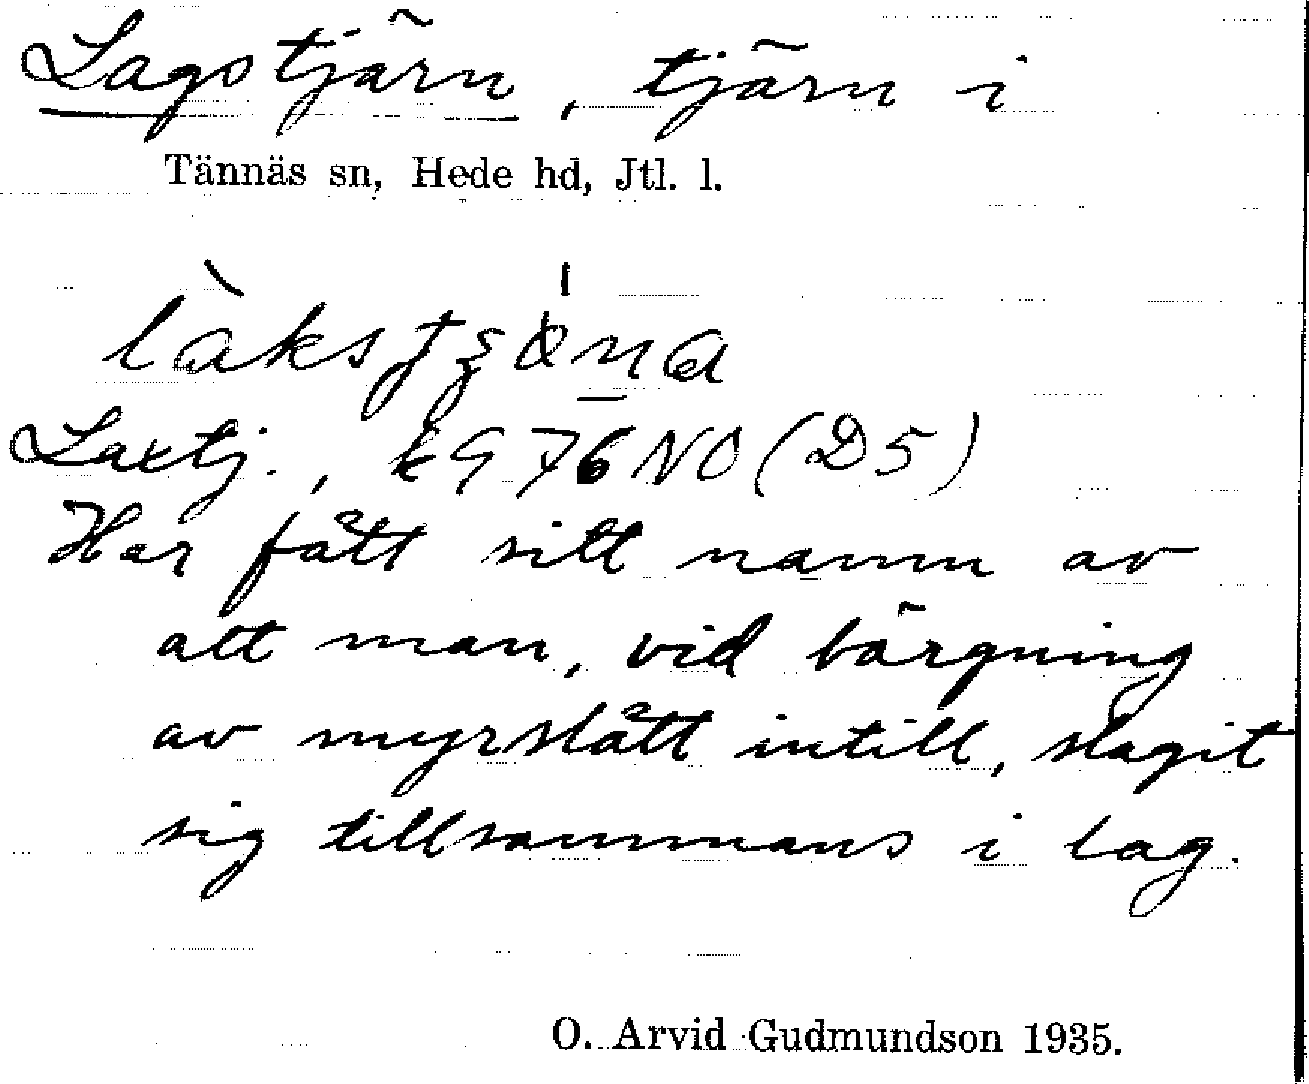 Lagstjärn, tjärn i
Tännäs sn, Hede hd, Jtl. l.
Laxtj., kG 76 NO (D5)
Har fått sitt namn av
att man, vid bärgning
av myrslått intill, slagit
sig tillsammans i lag.
O. Arvid Gudmundson 1935.